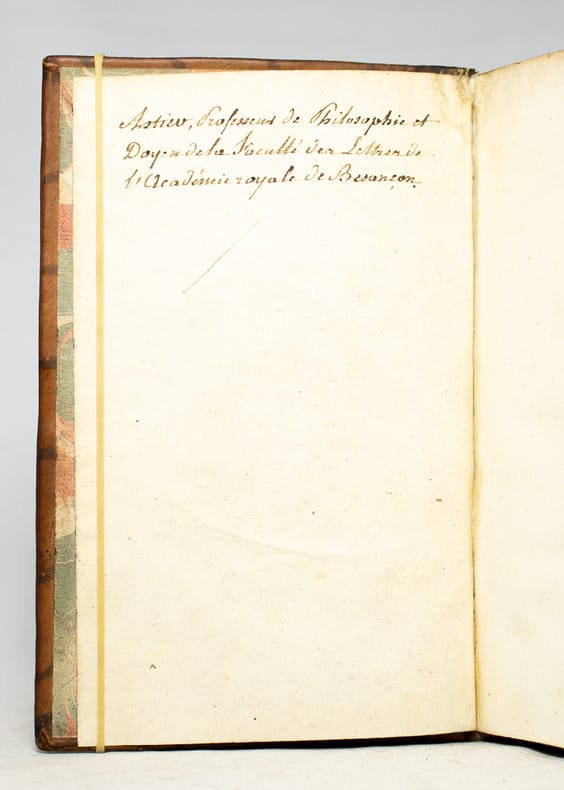 Astier, Professeur de Philosophie et
Doyen de la Faculté des Lettres de
l'Académie royale de Besançon.